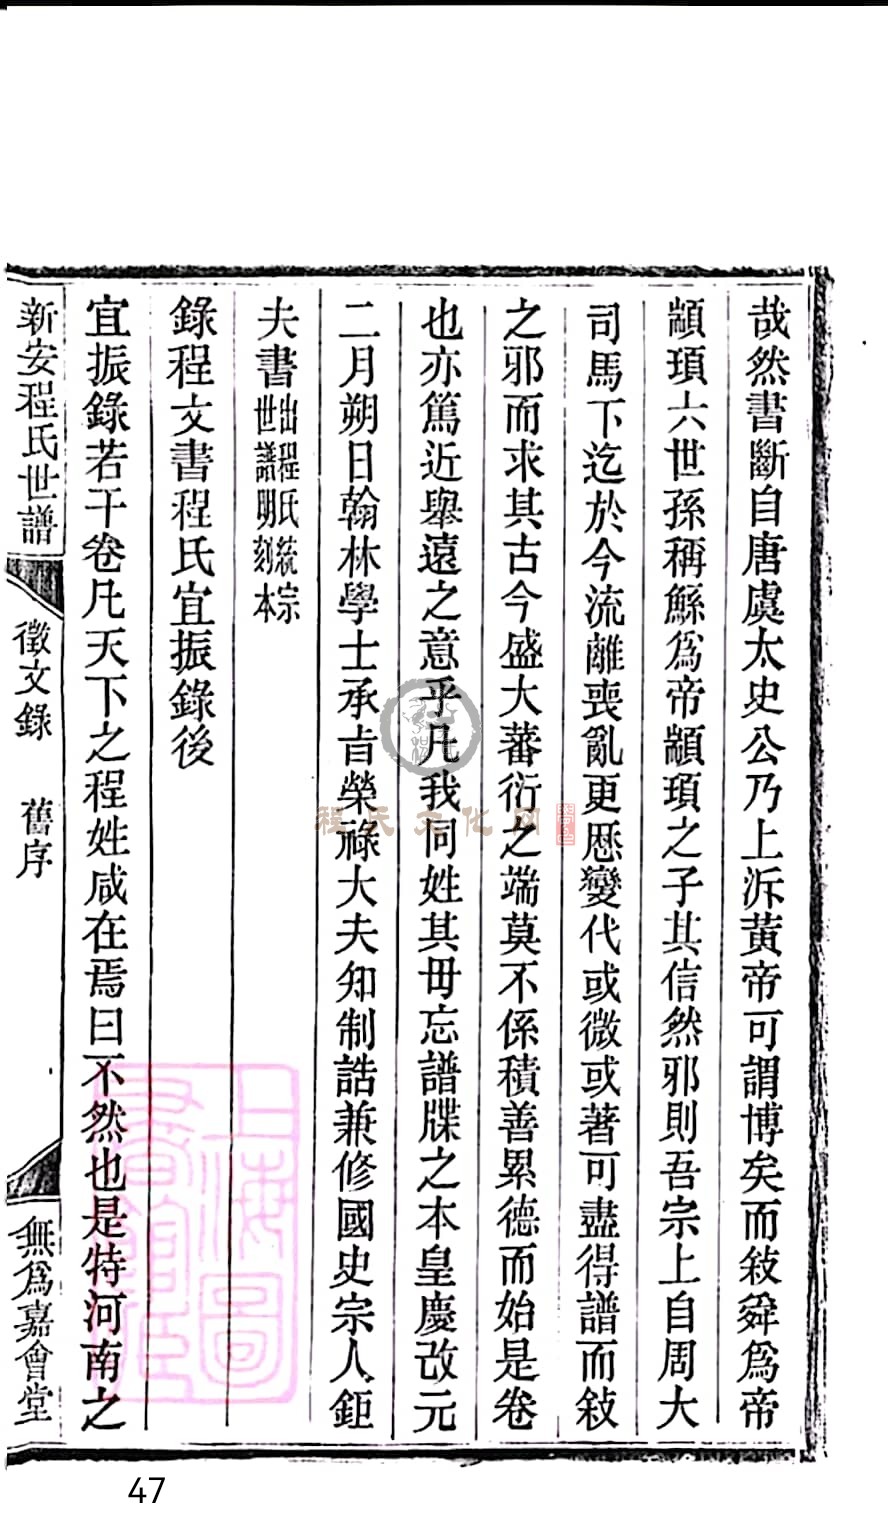 哉然書斷自唐虞太史公乃上泝黃帝可謂博矣而敍舜爲帝
顓頊六世孫稱鯀爲帝顓頊之子其信然邪則吾宗上自周大
司馬下迄於今流離喪亂更厯變代或微或著可盡得譜而敍
之邪而求其古今盛大蕃衍之端莫不係積善累德而始是卷
也亦篤近舉遠之意乎凡我同姓其毋忘譜牒之本皇慶改元
二月朔日翰林學士承旨榮祿大夫知制誥兼修國史宗人鉅
夫書出程氏統宗
世譜明刻本
錄程文書程氏宜振錄後
宜振錄若干卷凡天下之程姓咸在焉曰不然也是特河南之
新安程氏世譜 徵文錄 舊序 無爲嘉會堂
程氏文化网
上海圖書館藏
47